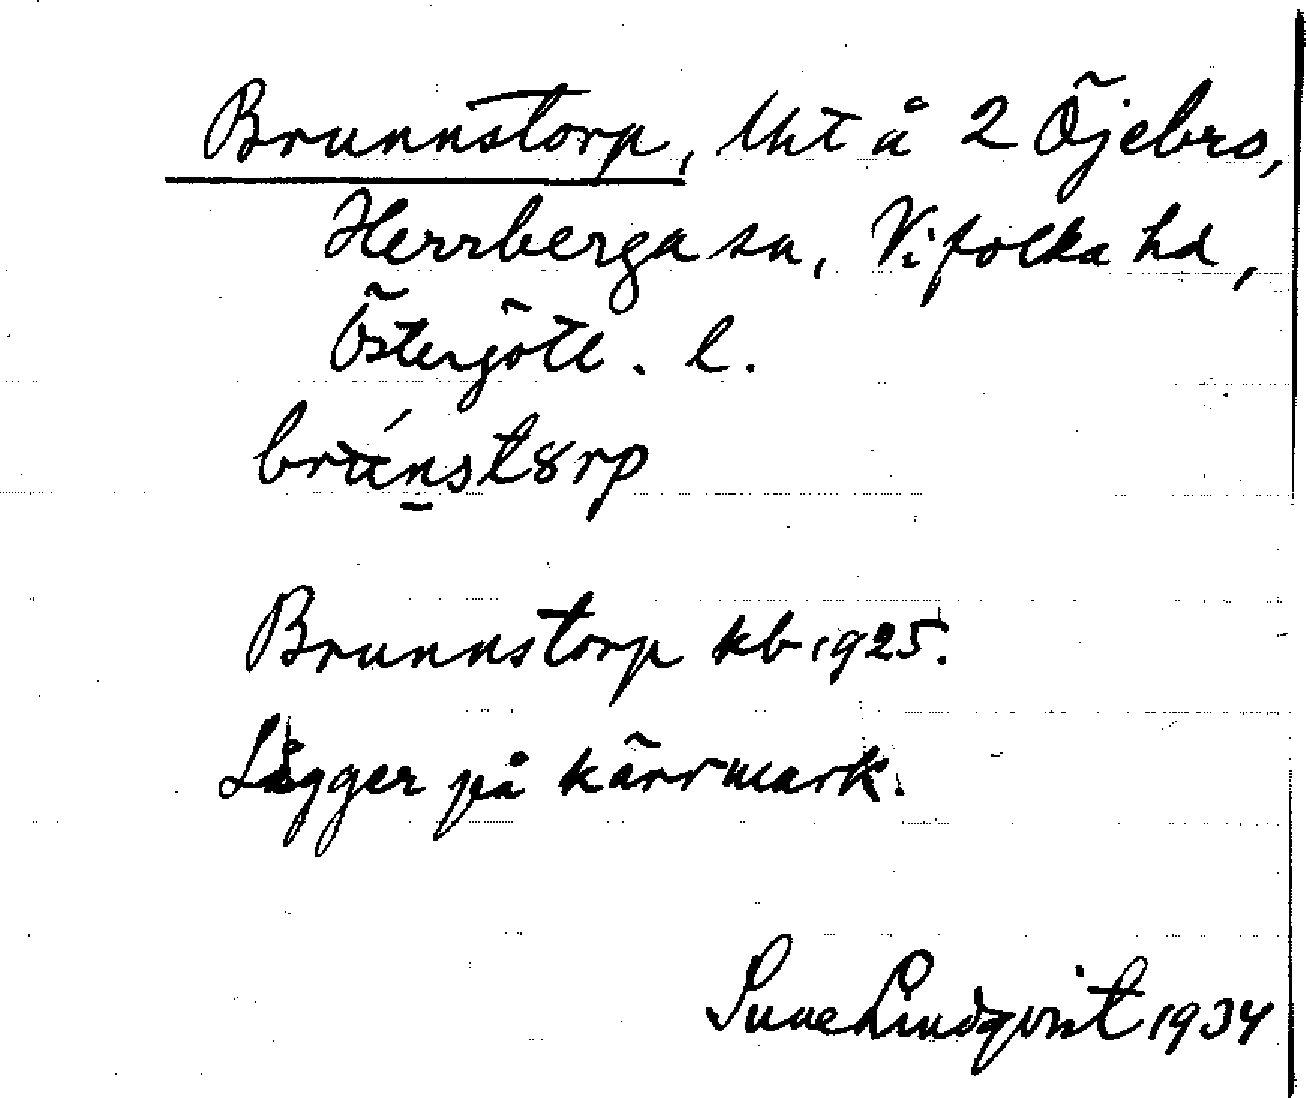 Brunnstorp, lht å 2 Öjebro,
Herrberga sn, Vifolka hd,
Östergötl. l.
Brunnstorp kb 1925.
Ligger på kärrmark.
Sune Lindqvist 1934